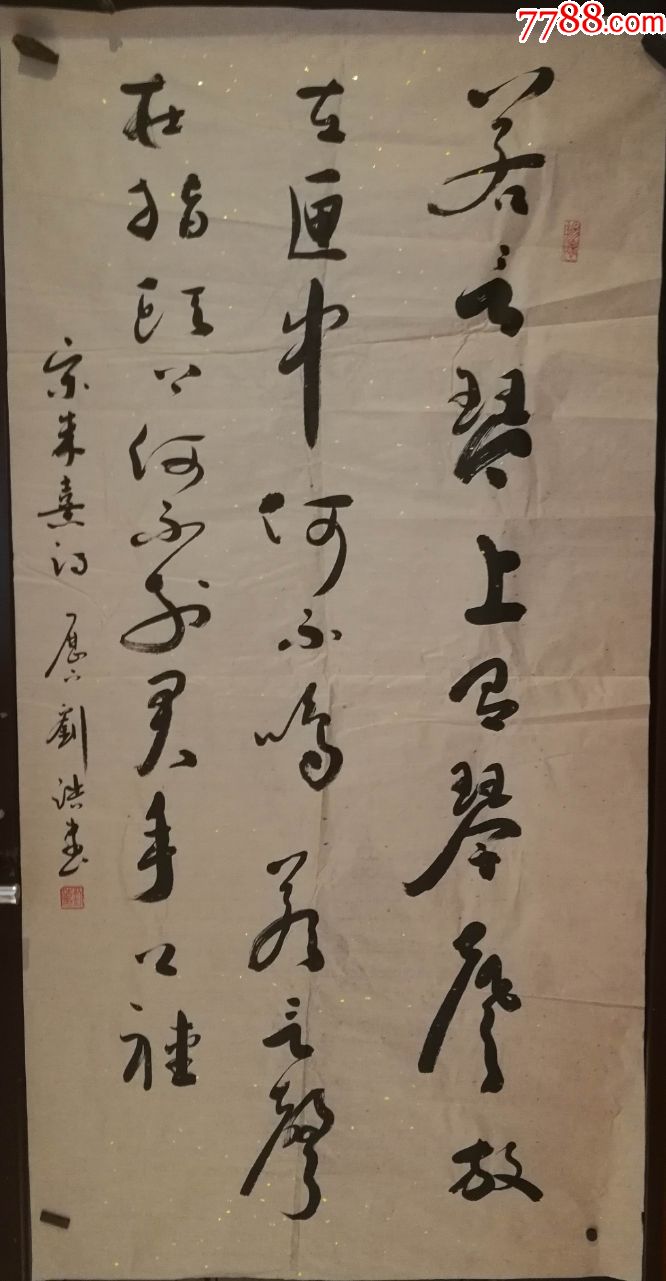 若言琴上有琴聲放
在匣中何不鳴若言聲
在指頭上何不於君手上聽
宋朱熹詩 劉書
7788.com